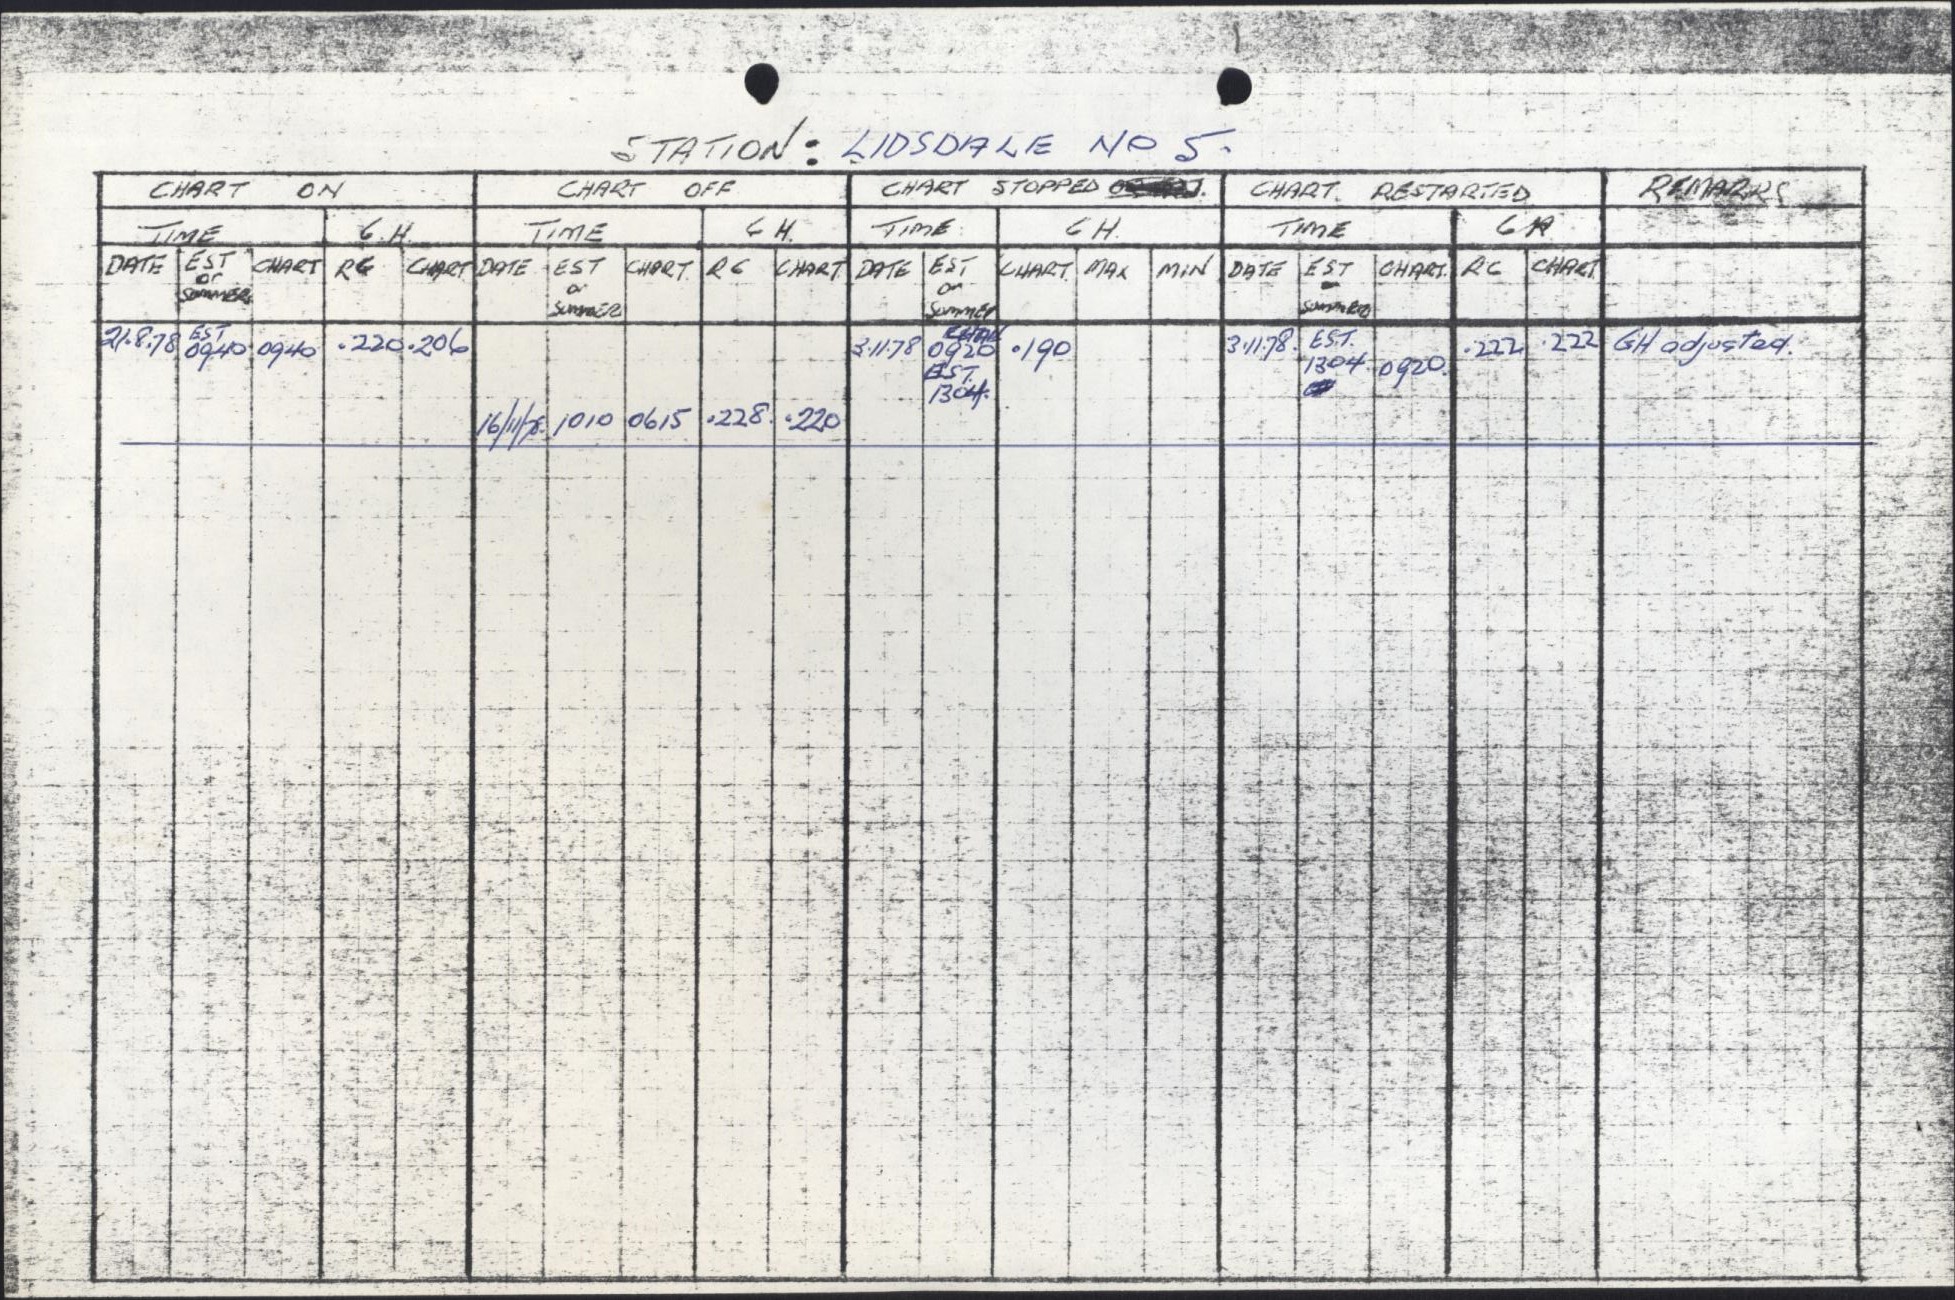 STATION: LIDSDALE NO 5.
CHART ON CHART OFF CHART STOPPED CHART RESTARTED REMARKS
TIME G.H. TIME G H. TIME G H. TIME G H
DATE EST or SUMMER CHART RG CHART DATE EST or SUMMER CHART RG CHART DATE EST or SUMMER CHART MAX MIN DATE EST or SUMMER CHART RG CHART
21.8.78 EST 0940 0940 .220 .206 3.11.78 0920 EST. 1304. .190 3.11.78. EST. 1304 0920. .222 .222 GH adjusted.
16/11/78. 1010 0615 .228. .220